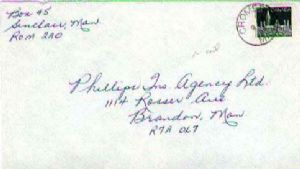 Box 45
Sinclair, Man
R0M 2A0
Phillips Ins. Agency Ltd.
1114 Rosser Ave
Brandon, Man
R7A 0L7